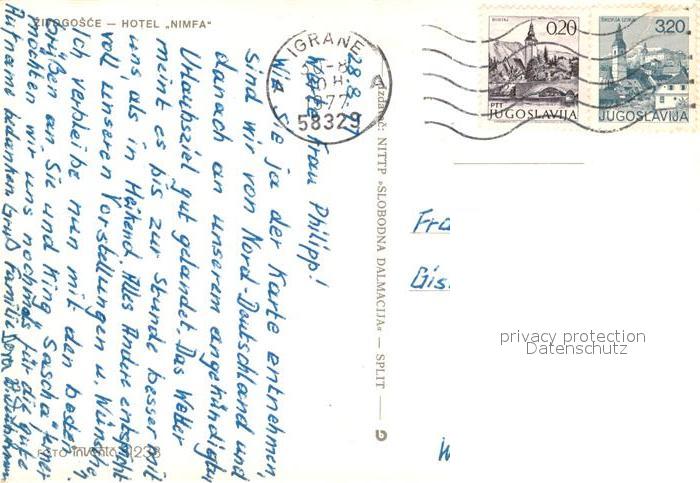 ŽIVOGOŠĆE — HOTEL „NIMFA"
IGRANE
77
58329
BOHINJ
0,20
PTT
JUGOSLAVIJA
ŠKOFJA LOKA
3,20
JUGOSLAVIJA
Izdavač: NITTP »SLOBODNA DALMACIJA« — SPLIT
28.8.77
Frau Philipp!
Wie Sie ja der Karte entnehmen,
sind wir von Nord-Deutschland und
danach an unserem angekündigten
Urlaubsziel gut gelandet. Das Wetter
meint es bis zur Stunde besser mit
uns, als in Heikend. Alles Andre entspricht
voll unseren Vorstellungen u. Wünschen.
Ich verbleibe nun mit den besten
Grüßen an Sie und King Sascha. Ferner
möchten wir uns nochmals für die gute
Aufnahme bedanken Gruß Familie
Gis
privacy protection
Datenschutz
W
FOTO
1238